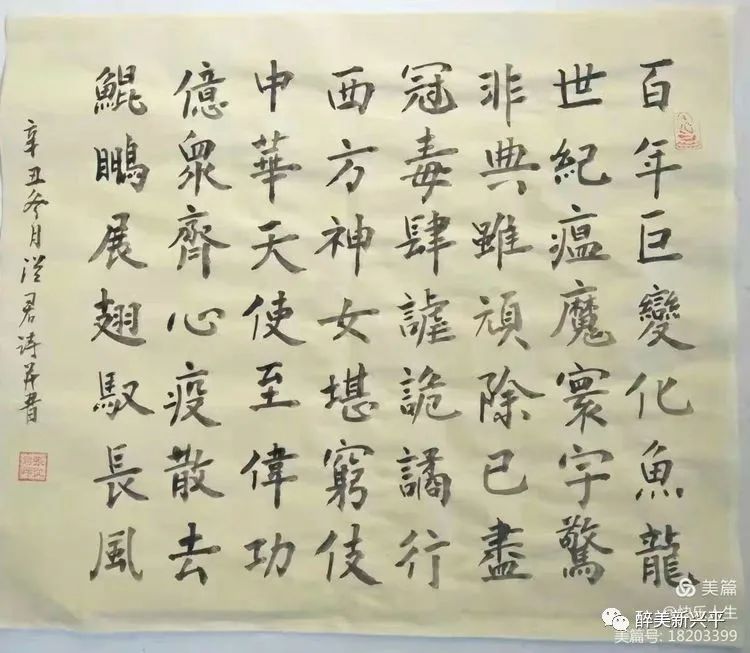 百年巨變化魚龍
世紀瘟魔寰宇驚
非典雖頑除已盡
冠毒肆謔詭譎行
西方神女堪窮伎
中華天使至偉功
億眾齊心疫散去
鯤鵬展翅馭長風
辛丑冬月 君詩并書
美篇
@快乐人生
醉美新兴平
美篇号: 18203399